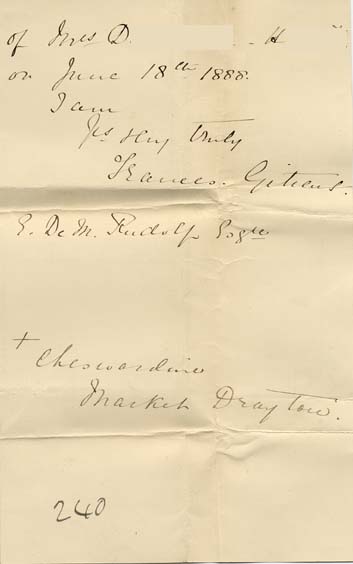 of Mrs D. H
on June 18th 1888.
I am
Yrs vry truly
Frances.
E. De M. Rudolf Esqre
+ Cheswardine
Market Drayton.
240